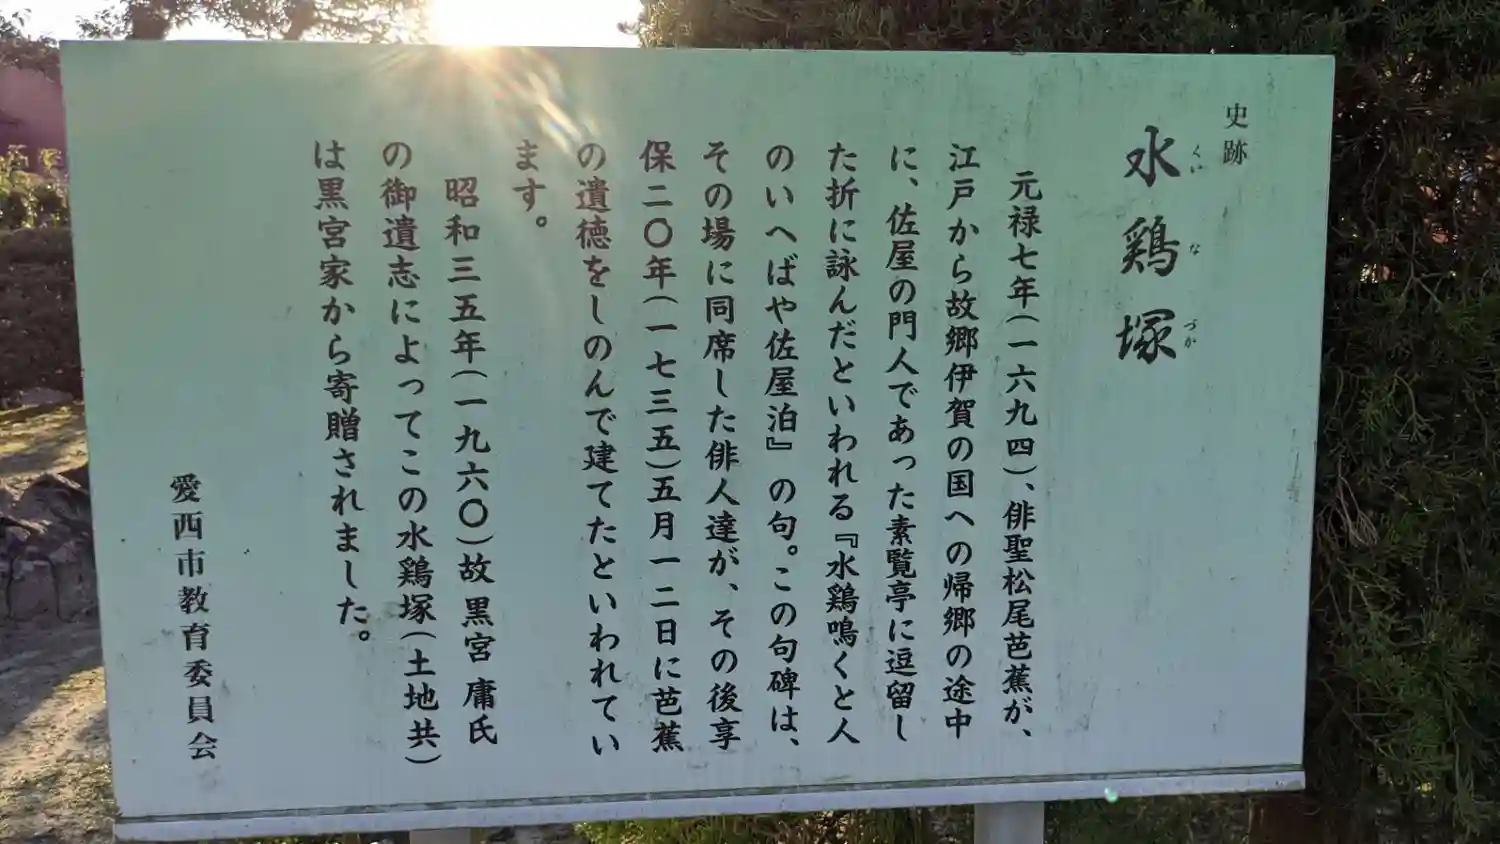 史跡
水鶏塚
くいなづか
元禄七年(一六九四)、俳聖松尾芭蕉が、
江戸から故郷伊賀の国への帰郷の途中
に、佐屋の門人であった素覧亭に逗留し
た折に詠んだといわれる『水鶏鳴くと人
のいへばや佐屋泊』の句。この句碑は、
その場に同席した俳人達が、その後享
保二〇年(一七三五)五月一二日に芭蕉
の遺徳をしのんで建てたといわれてい
ます。
昭和三五年(一九六〇)故 黒宮 庸氏
の御遺志によってこの水鶏塚(土地共)
は黒宮家から寄贈されました。
愛西市教育委員会